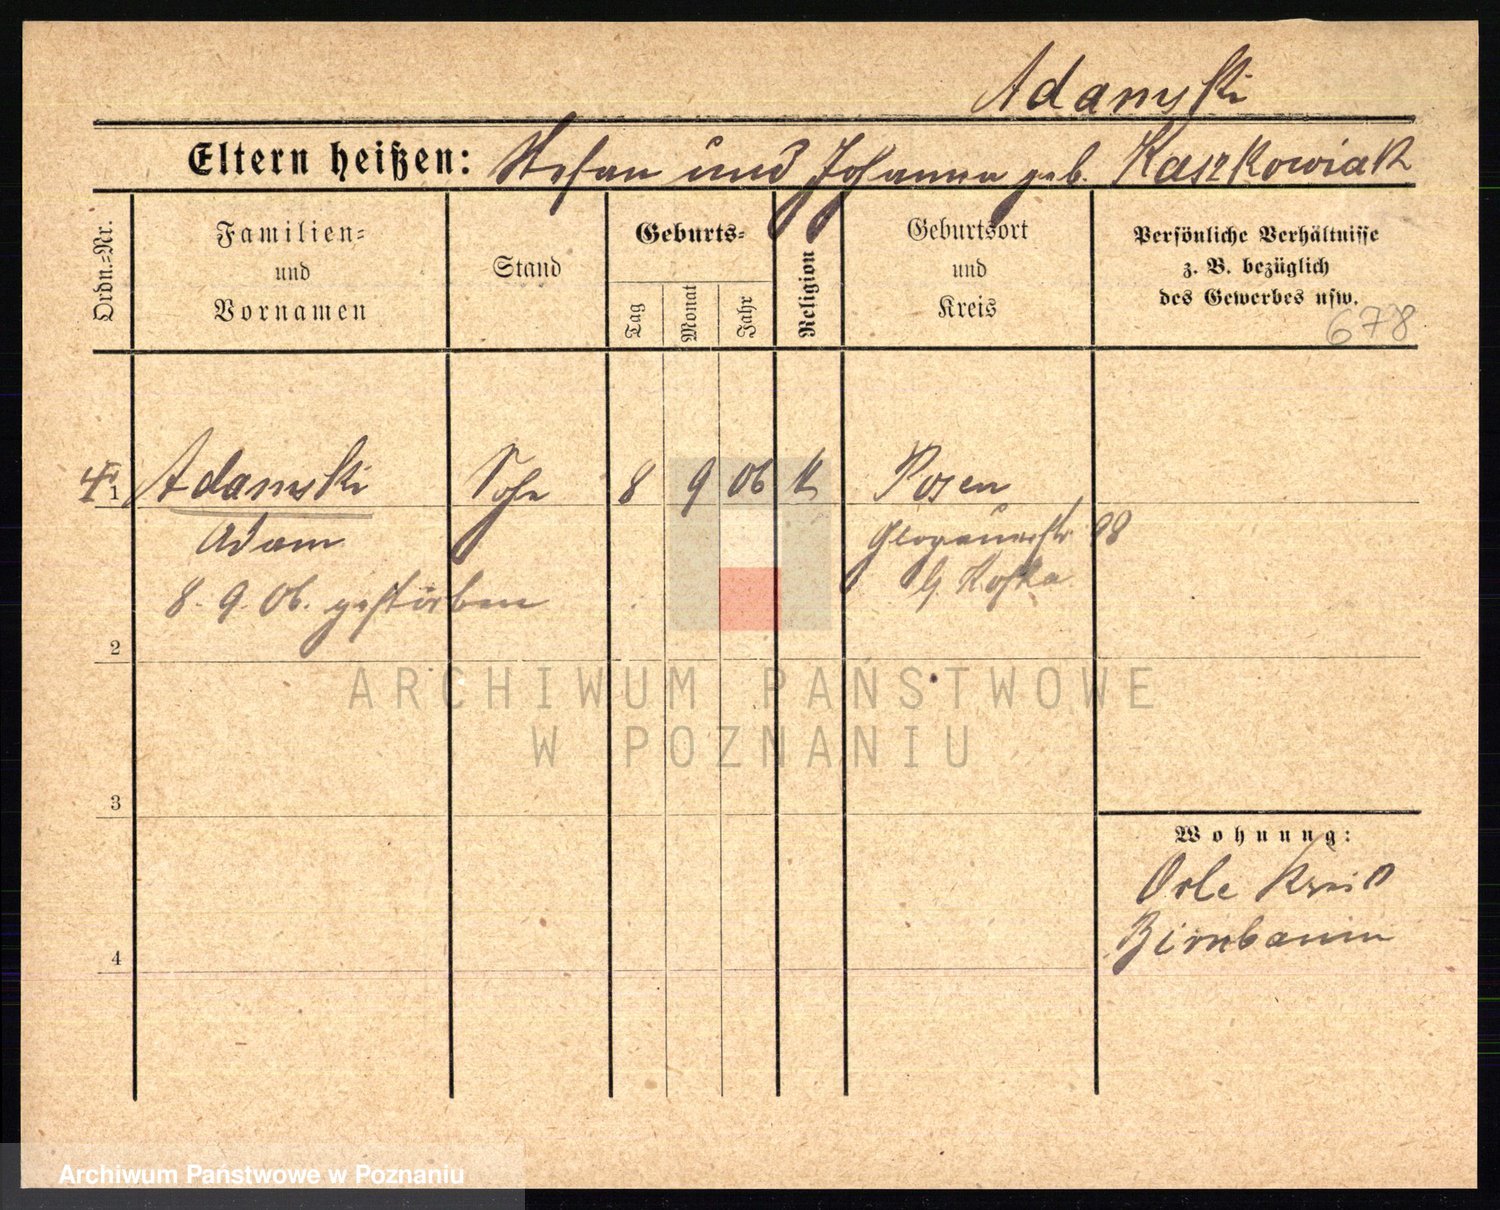 Adamski
Eltern heißen: Stefan und Johanna geb. Kaszkowiak
Ordn.=Nr.
Familien=
und
Vornamen
Stand
Geburts=
Tag
Monat
Jahr
Religion
Geburtsort
und
Kreis
Persönliche Verhältnisse
z. B. bezüglich
des Gewerbes usw.
678
1 Adamski Sohn 8 9 06 k Posen
Adam
Glogauerstr. 98
8. 9. 06. gestorben
b. Koska
2
3
4
Wohnung:
Orle Kreis
Birnbaum
ARCHIWUM PAŃSTWOWE
W POZNANIU
Archiwum Państwowe w Poznaniu